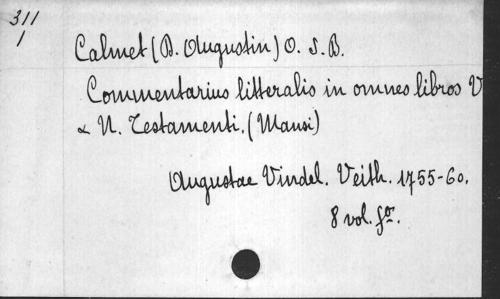 311
1
Calmet (B. Augustin) O. S. B.
Commentarius litteralis in omnes libros V
& N. Testamenti. (Mansi)
Augustae Vindel. Veith. 1755-60.
8 vol. fo.